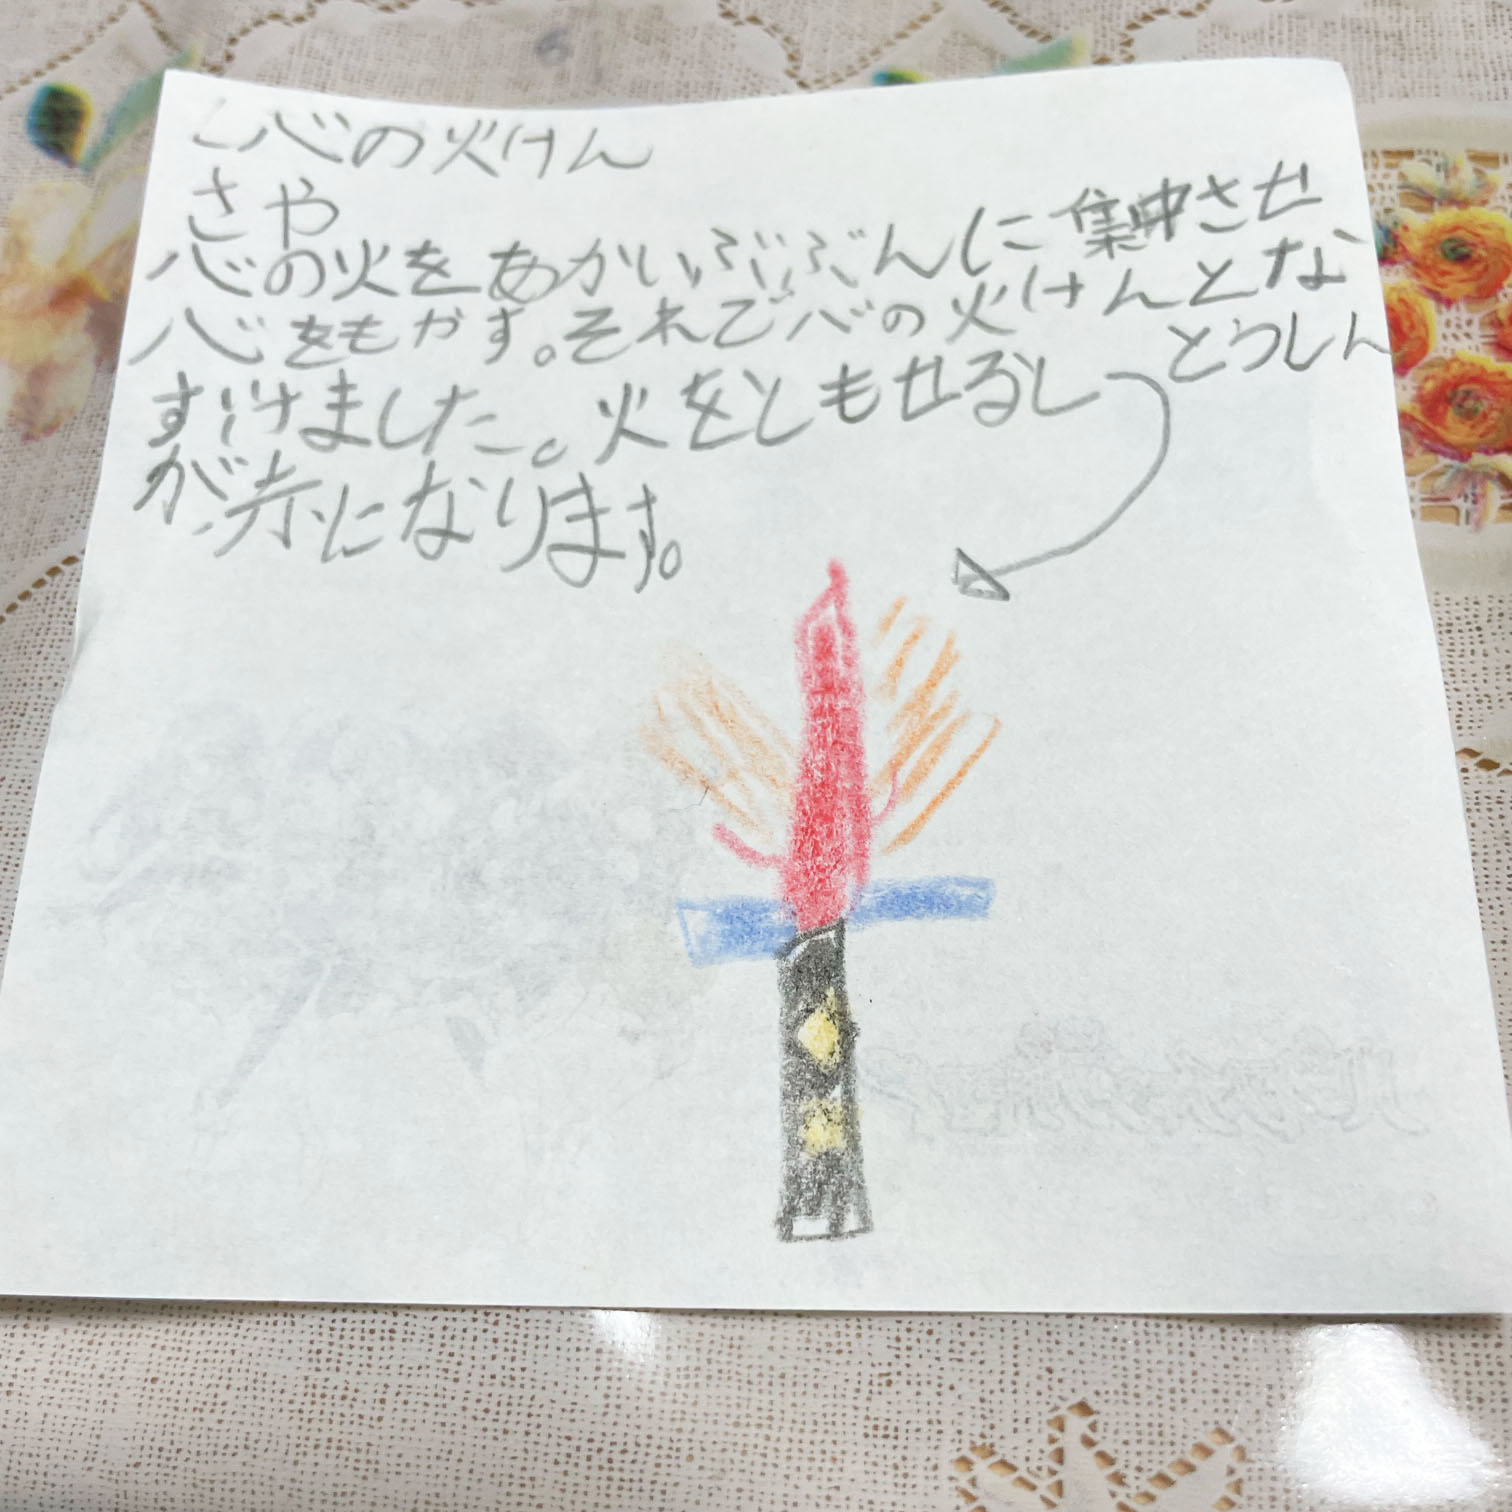 心の火けん
さや
心の火をあかいぶぶんに集中させ
心をもやす。それで心の火けんとな
ずけました。火をともせるし
とうしん
が赤になります。